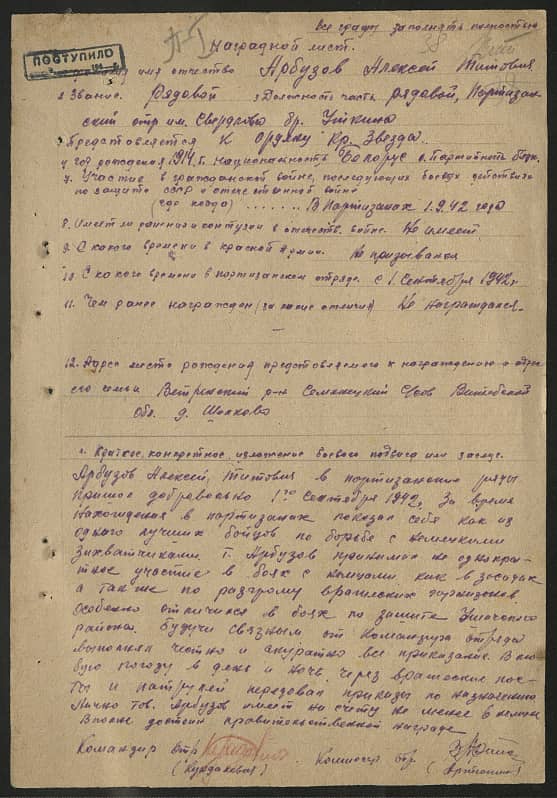 Все графы заполнять полностью
Наградной лист.
ПОСТУПИЛО
имя отчество Арбузов Алексей Титович
2. Звание. Рядовой 3. Должность часть рядовой, Партизан-
ский отр им. Свердлова бр. Уткина
Предстовляется К Ордену Кр. Звезда
4 год рождения 1914 г. Национальность Белорус 6. Партийность
7. Участие в гражданской войне, последующих боевых действиях
по защите СССР и отечественной войне
(где когда) . . . . . . . В Партизанах 1.9.42 года
8. Имеет ли ранения и контузии в отечеств. войне. Не имеет
9. С какого времени в красной Армии. Не призывался
10. С какого времени в партизанском отряде. с 1. Сентября 1942 г.
11. Чем ранее награжден (за какие отличия) Не награждался.
12. Адрес место рождения предстовляемого к награждению и адрес
его семьи Ветринский р-н Витебской
Обл. д.
1. Краткое, конкретное, изложение боевого подвига или заслуг.
Арбузов Алексей, Титович в партизанские ряды
пришол добровольно 1го Сентября 1942, За время
нахождения в партизанах показал себя как из
одного лучших бойцов по борьбе с немецкими
захватчиками. Т. Арбузов принимал не однокра-
тное участие в боях с немцами, как в засадах
а так же по разгрому вражеских гарнизонов.
Особенно отличился в боях по защите Ушачского
района. Будучи связным от Командира отряда
выполнял честно и акуратно все приказания. В лю-
бую погоду в день и ночь через вражеские пос-
ты и патрулей передовал приказы по назначению
Лично тов. Арбузов имеет на счету не менее 6 немцев
Вполне достоин правительственной награде
Командир отр Комиссар отр.